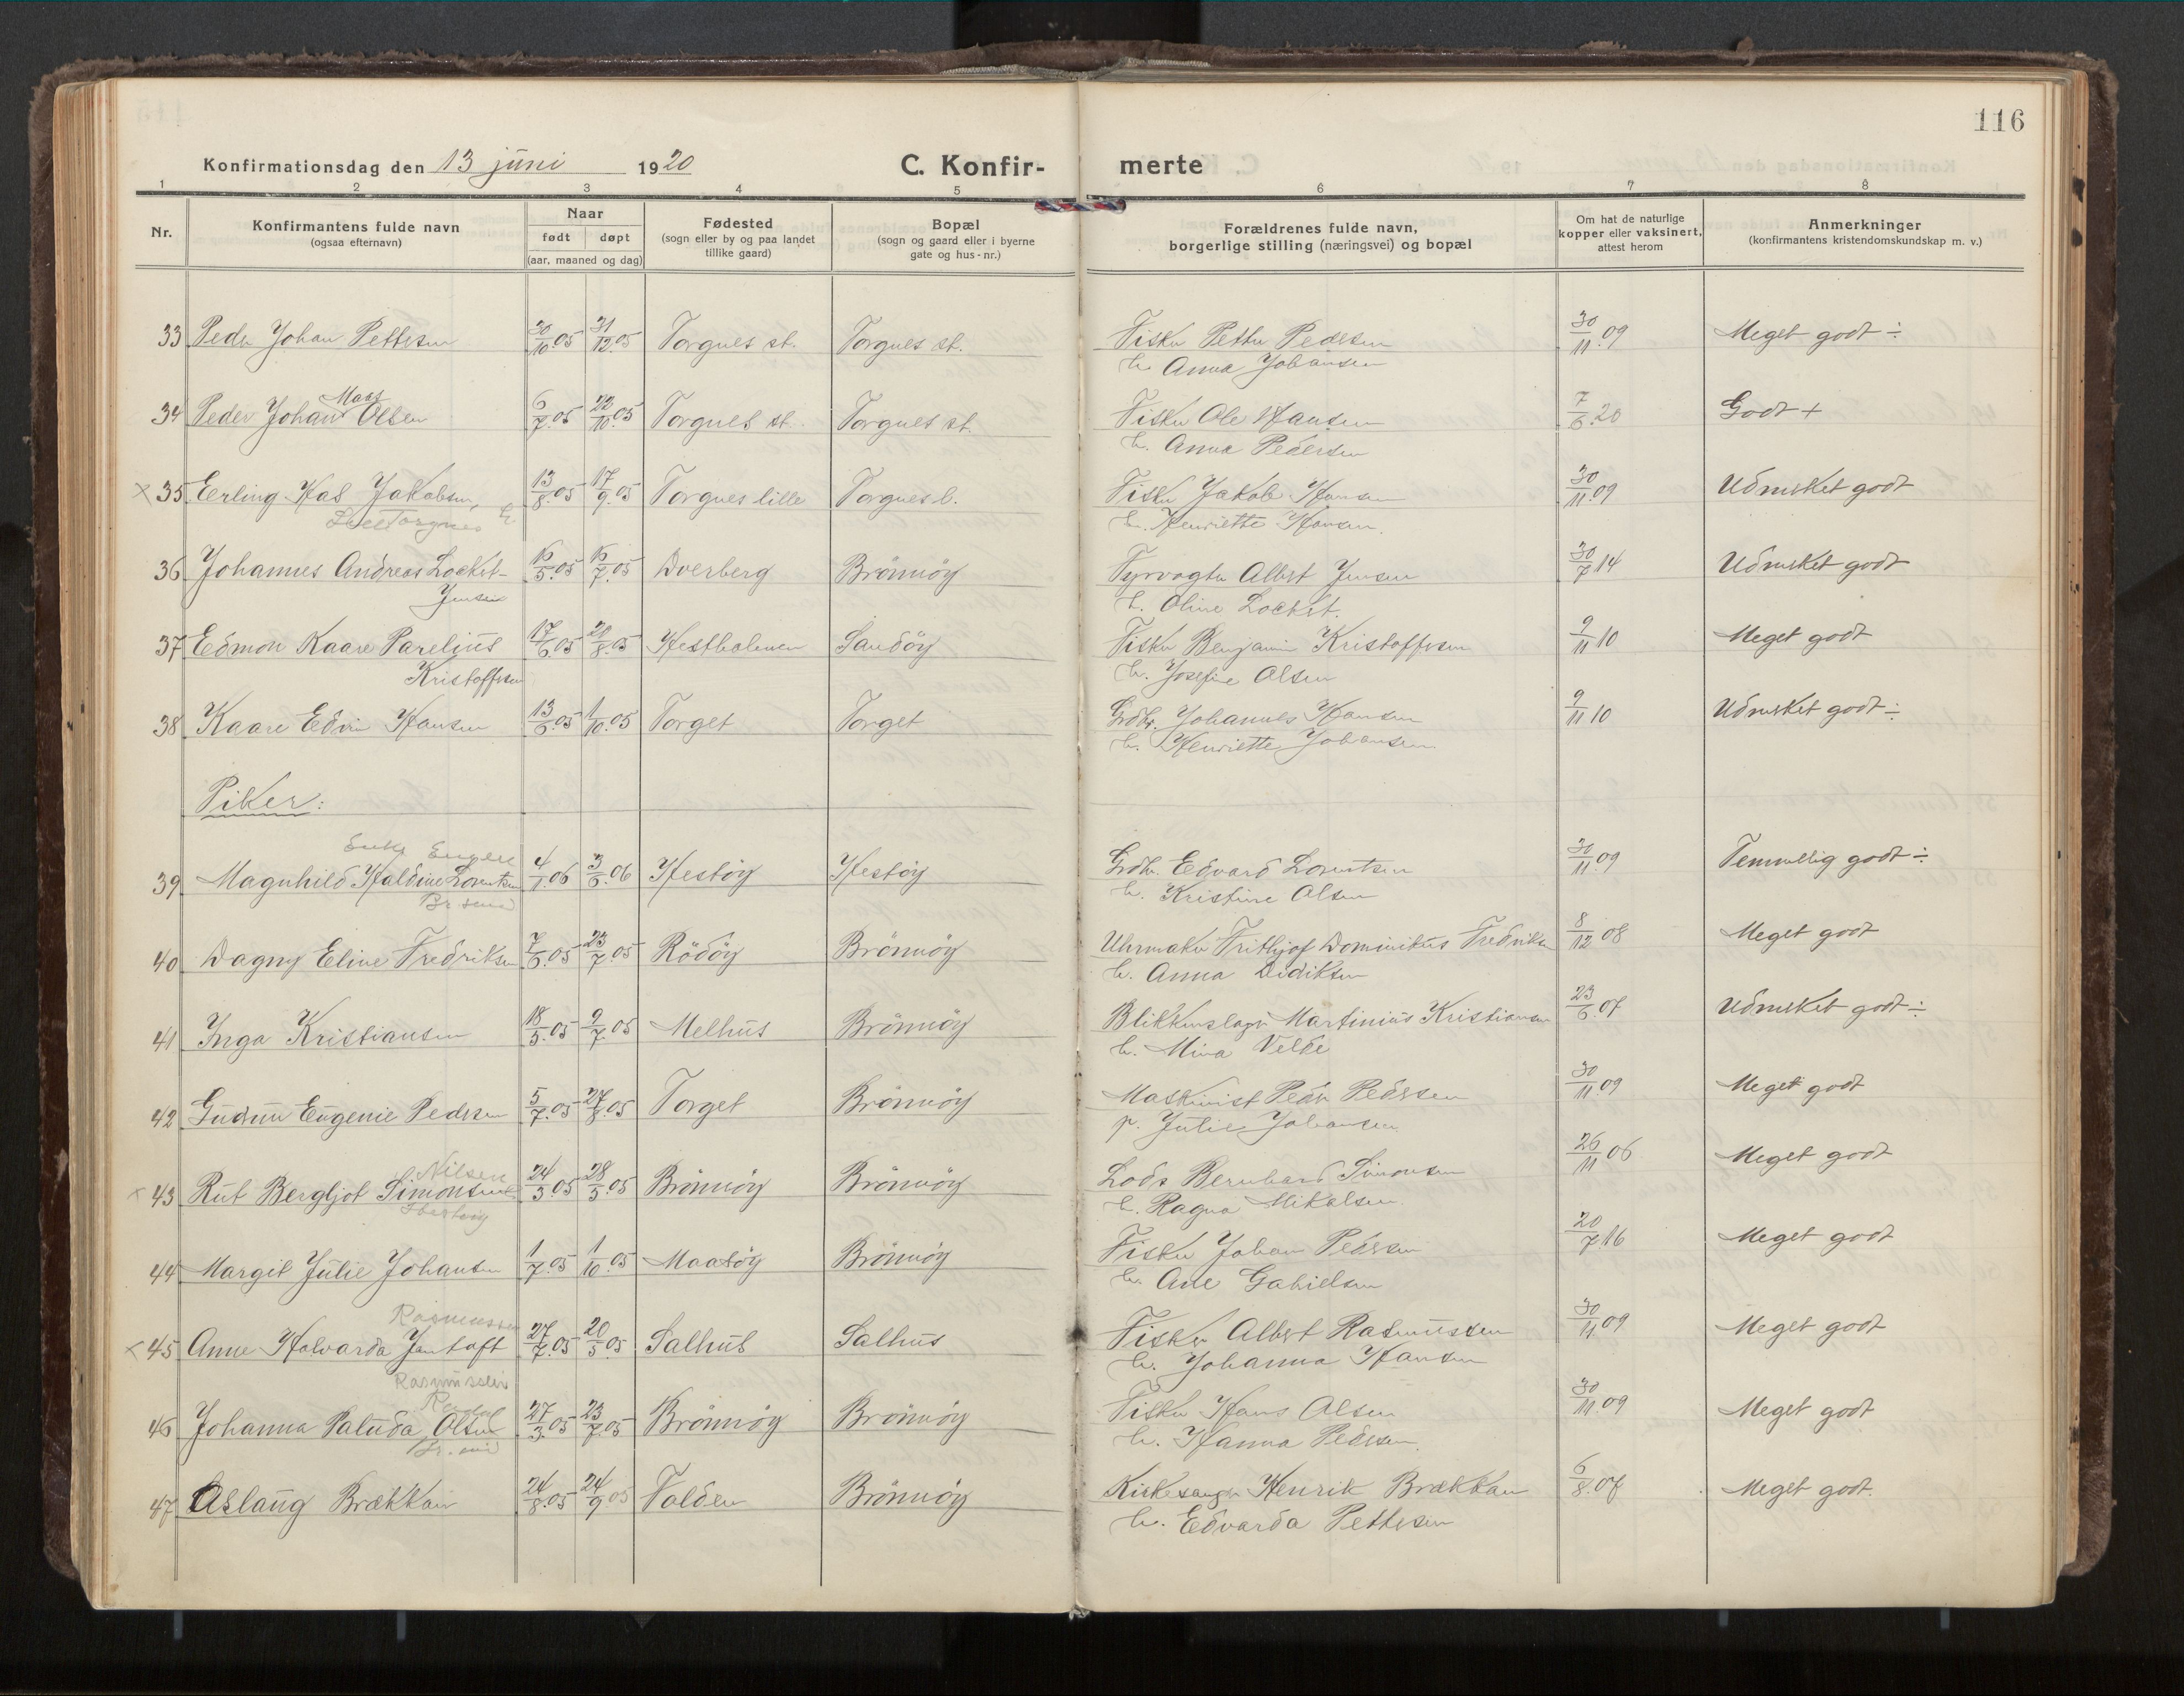 116
Konfirmationsdag den 13 juni 1920 C. Konfirmerte
1 2 3 4 5 6 7 8
Nr.
Konfirmantens fulde navn
(ogsaa efternavn)
Naar
født døpt
(aar, maaned og dag)
Fødested
(sogn eller by og paa landet
tillike gaard)
Bopæl
(sogn og gaard eller i byerne
gate og hus-nr.)
Forældrenes fulde navn,
borgerlige stilling (næringsvei) og bopæl
Om hat de naturlige
kopper eller vaksinert,
attest herom
Anmerkninger
(konfirmantens kristendomskundskap m. v.)
33 Peder Johan Pettersen 30/10.05 31/12.05 Torgnes st. Torgnes st. Fisker Petter Pedersen 30/11.09 Meget godt ÷
h. Anna Johansen
Maas
34 Peder Johan Olsen 6/7.05 22/10.05 Torgnes st. Torgnes st. Fisker Ole Hansen 7/6.20 Godt +
h. Anna Pedersen
× 35 Erling Hal Jakobsen, 13/8.05 17/9.05 Torgnes lille Torgnes l. Fisker Jakob Hansen 30/11.09 Udmerket godt
Torgnes
h. Henriette Hansen.
36 Johannes Andreas Lockert- 16/5.05 16/7.05 Dverberg Brønnøy Fyrvogter Albert Jensen 30/7 14 Udmerket godt
Jensen
h. Oline Lockert.
37 Edmon Kaare Parelius 17/6.05 20/8.05 Hestholmen Sandøy Fisker Benjamin Kristoffersen 9/11 10 Meget godt
Kristoffersen
h. Josefine Olsen
38 Kaare Edvin Hansen 13/6.05 1/10.05 Torget Torget Grdbr. Johannes Hansen 9/11 10 Udmerket godt ÷
h. Henriette Johansen
Piker:
39 Magnhild Haldine Lorentsen 4/1.06 3/6.06 Hestøy Hestøy Grdbr. Edvard Lorentsen 30/11.09 Temmelig godt ÷
h. Kristine Olsen
40 Dagny Eline Fredriksen 7/6.05 23/7.05 Rødøy Brønnøy Uhrmaker Frithjof Dominikus Fredriksen 8/12 08 Meget godt
h. Anna Didiksen
41 Inga Kristiansen 18/5.05 9/7.05 Melhus Brønnøy Blikkenslager Martinius Kristiansen 23/6.07 Udmerket godt ÷
h. Mina Velde
42 Gudrun Eugenie Pedersen 5/7.05 27/8.05 Torget Brønnøy Maskinist Peder Pedersen 30/11.09 Meget godt
p. Julie Johansen
Nilsen
× 43 Rut Bergljot Simonsen 24/3.05 28/5.05 Brønnøy Brønnøy Lods Bernhard Simonsen 26/11 06 Meget godt
h. Ragna Mikalsen.
44 Margit Julie Johansen 1/7.05 1/10.05 Maarøy Brønnøy Fisker Johan Pedersen 20/7 16 Meget godt
h. Ane Gabrielsen
Rasmussen
× 45 Anne Halvarda Jentoft 27/7.05 20/5.05 Salhus Salhus Fisker Albert Rasmussen 30/11.09 Meget godt
Rasmussen
h. Johanna Hansen
46 Johanna Paluda Olsen 27/3.05 23/7.05 Brønnøy Brønnøy Fisker Hans Olsen 30/11.09 Meget godt
h. Hanna Pedersen.
47 Aslaug Brækkan 24/8.05 24/9.05 Folden Brønnøy Kirkesanger Henrik Brækkan 6/8.07 Meget godt.
h. Edvarda Pettersen